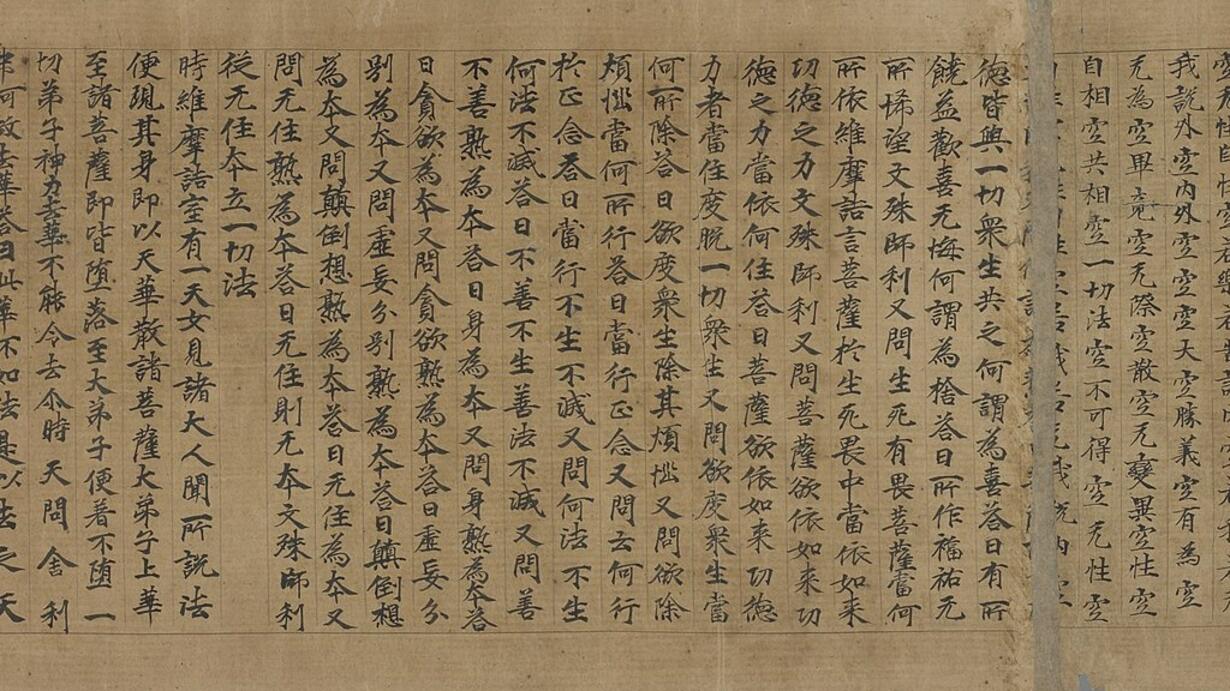 我說外空內外空空空大空勝義空有為空
无為空畢竟空无際空散空无變異空性空
自相空共相空一切法空不可得空无性空
德皆與一切衆生共之何謂為喜答曰有所
饒益歡喜无悔何謂為捨答曰所作福祐无
所悕望文殊師利又問生死有畏菩薩當何
所依維摩詰言菩薩於生死畏中當依如来
功德之力文殊師利又問菩薩欲依如来功
德之力當依何住答曰菩薩欲依如来功德
力者當住度脫一切衆生又問欲度衆生當
何所除答曰欲度衆生除其煩惱又問欲除
煩惱當何所行答曰當行正念又問云何行
於正念答曰當行不生不滅又問何法不生
何法不滅答曰不善不生善法不滅又問善
不善熟為本答曰身為本又問身熟為本答
曰貪欲為本又問貪欲熟為本答曰虛妄分
別為本又問虛妄分別熟為本答曰顛倒想
為本又問顛倒想熟為本答曰无住為本又
問无住熟為本答曰无住則无本文殊師利
從无住本立一切法
時維摩詰室有一天女見諸大人聞所說法
便現其身即以天華散諸菩薩大弟子上華
至諸菩薩即皆墮落至大弟子便著不墮一
切弟子神力去華不能令去尒時天問舍利
弗何故去華答曰此華不如法是以去之天